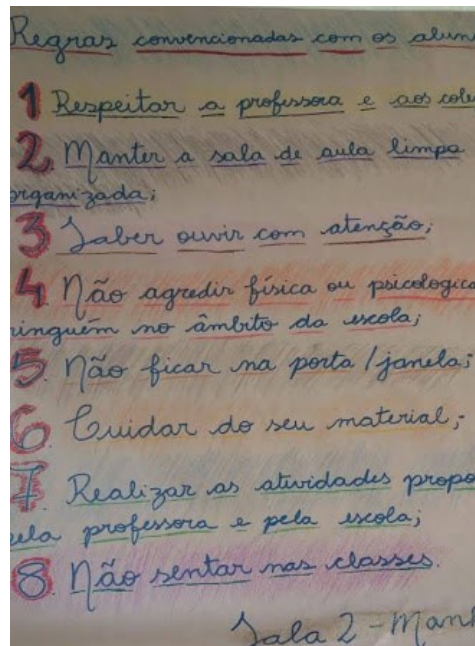 Regras convencionadas com os alun
1 Respeitar a professora e aos cole
2. Manter a sala de aula limpa
organizada;
3 Saber ouvir com atenção;
4. Não agredir física ou psicologica
ninguém no âmbito da escola;
5. Não ficar na porta/janela;
6. Cuidar do seu material;
7. Realizar as atividades propo
pela professora e pela escola;
8 Não sentar nas classes.
Sala 2 - Manh